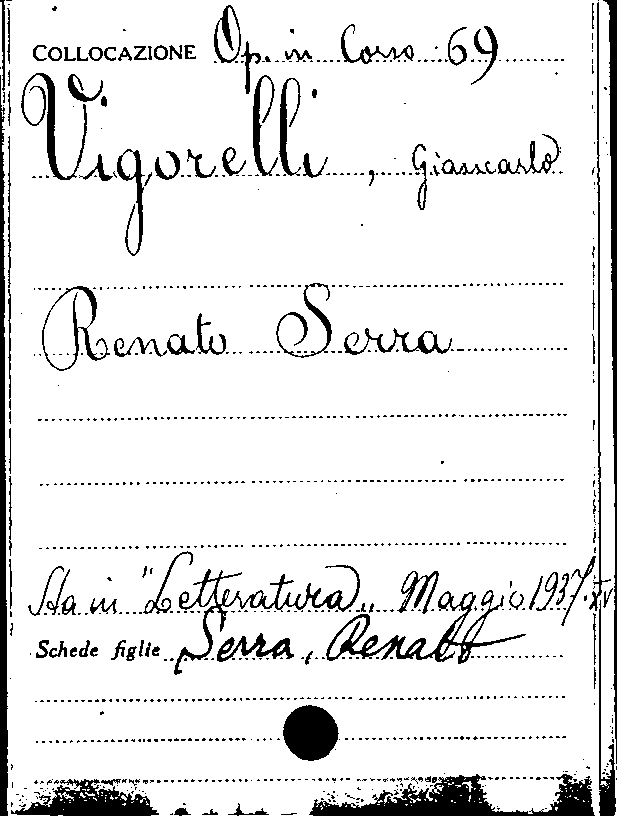 COLLOCAZIONE Op. in Corso 69
Vigorelli, Giancarlo
Renato Serra
Sta in "Letteratura" Maggio 1937.XV
Schede figlie Serra, Renato